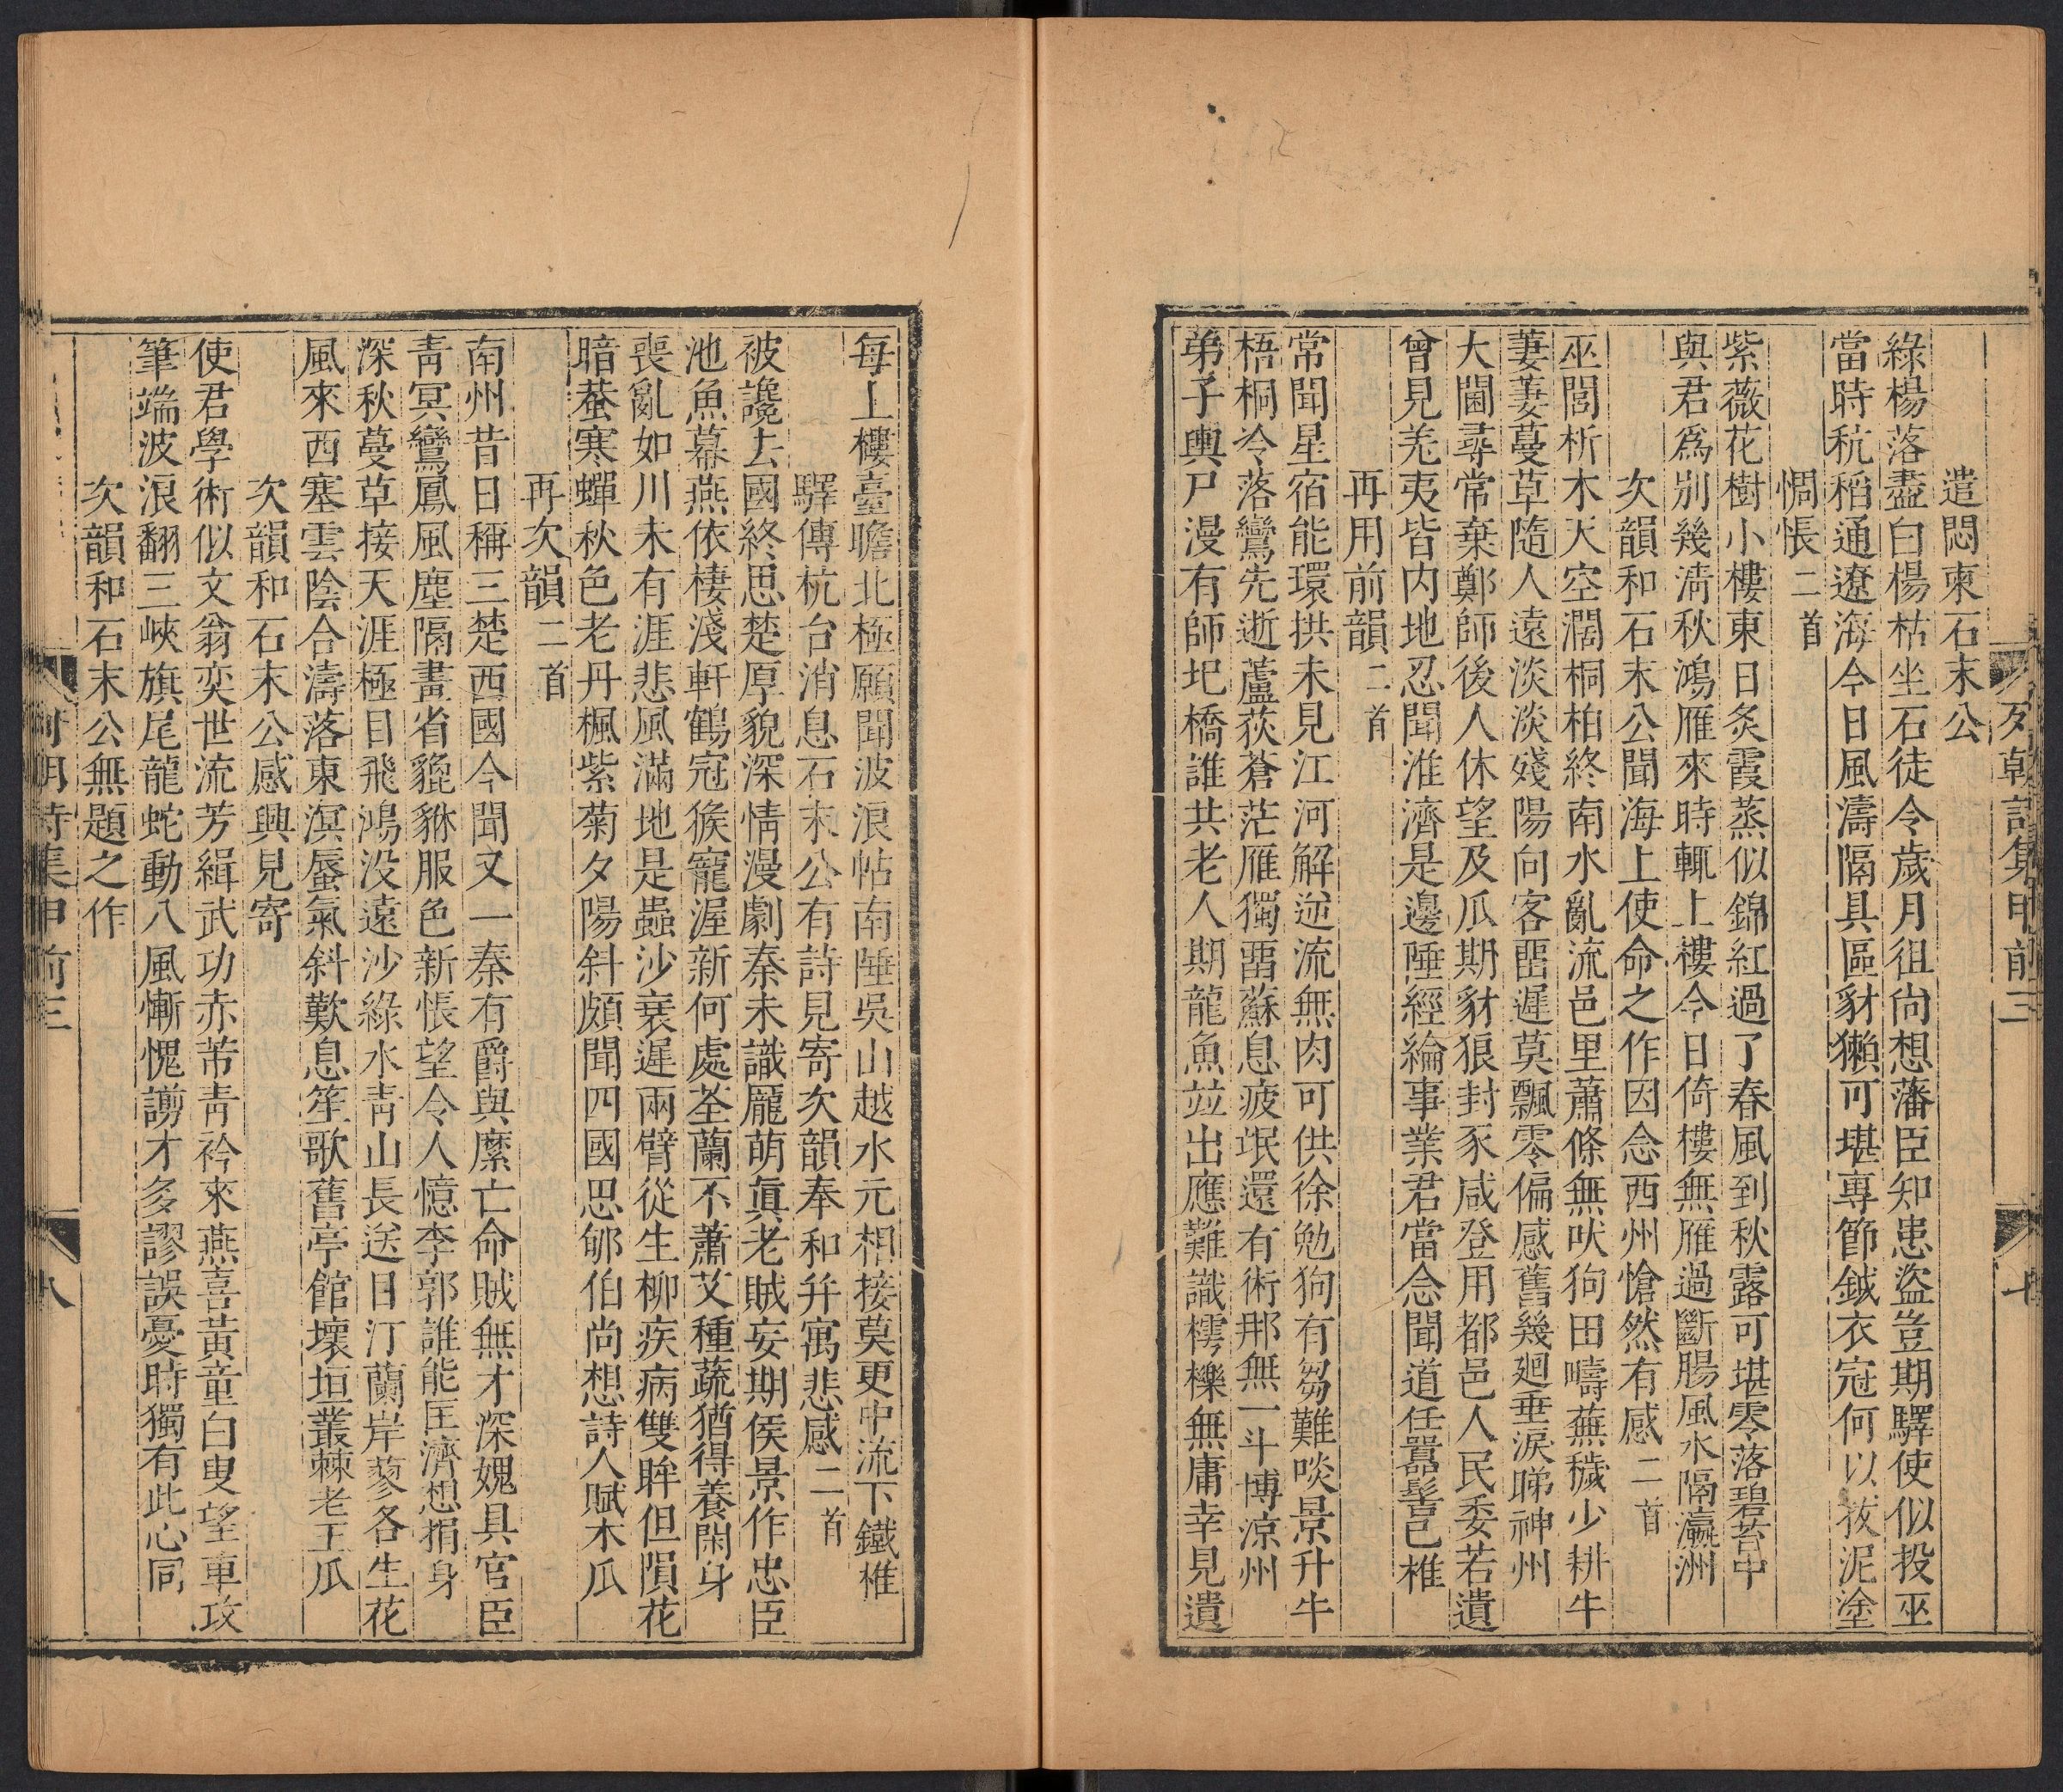 列朝詩集甲前三
七
遣悶柬石末公
綠楊落盡白楊枯坐石徒令歲月徂尙想藩臣知患盜豈期驛使似投巫
當時秔稻通遼海今日風濤隔具區豺獺可堪專節鉞衣冠何以拔泥塗
惆悵二首
紫薇花樹小樓東日炙霞蒸似錦紅過了春風到秋露可堪零落碧苔中
與君爲別幾淸秋鴻雁來時輒上樓今日倚樓無雁過斷腸風水隔瀛洲
次韻和石末公聞海上使命之作因念西州愴然有感二首
巫閭析木天空濶桐柏終南水亂流邑里蕭條無吠狗田疇蕪穢少耕牛
萋萋蔓草隨人遠淡淡殘陽向客畱遲莫飄零偏感舊幾廻垂淚睇神州
大閫尋常棄鄭師後人休望及瓜期豺狼封豕咸登用都邑人民委若遺
曾見羌夷皆内地忍聞淮濟是邊陲經綸事業君當念聞道任囂髻已椎
再用前韻二首
常聞星宿能環拱未見江河解逆流無肉可供徐勉狗有芻難啖景升牛
梧桐冷落鸞先逝蘆荻蒼茫雁獨畱蘇息疲氓還有術那無一斗博涼州
弟子輿尸漫有師圯橋誰共老人期龍魚竝出應難識樗櫟無庸幸見遺
每上樓臺瞻北極願聞波浪帖南陲吳山越水元相接莫更中流下鐵椎
驛傳杭台消息石末公有詩見寄次韻奉和幷寓悲感二首
被讒去國終思楚厚貌深情漫劇秦未識龐萌眞老賊妄期侯景作忠臣
池魚幕燕依棲淺軒鶴冠猴寵渥新何處荃蘭不蕭艾種蔬猶得養閑身
喪亂如川未有涯悲風滿地是蟲沙衰遲兩臂從生柳疾病雙眸但隕花
暗蛬寒蟬秋色老丹楓紫菊夕陽斜頗聞四國思郇伯尙想詩人賦木瓜
再次韻二首
南州昔日稱三楚西國今聞又一秦有爵與縻亡命賊無才深媿具官臣
靑冥鸞鳳風塵隔晝省貔貅服色新悵望令人憶李郭誰能匡濟想捐身
深秋蔓草接天涯極目飛鴻没遠沙綠水靑山長送日汀蘭岸蓼各生花
風來西塞雲陰合濤落東溟蜃氣斜歎息笙歌舊亭館壞垣叢棘老王瓜
次韻和石末公感興見寄
使君學術似文翁奕世流芳緝武功赤芾靑衿來燕喜黃童白叟望車攻
筆端波浪翻三峽旗尾龍蛇動八風慚愧謭才多謬誤憂時獨有此心同
次韻和石末公無題之作
列朝詩集甲前三
八